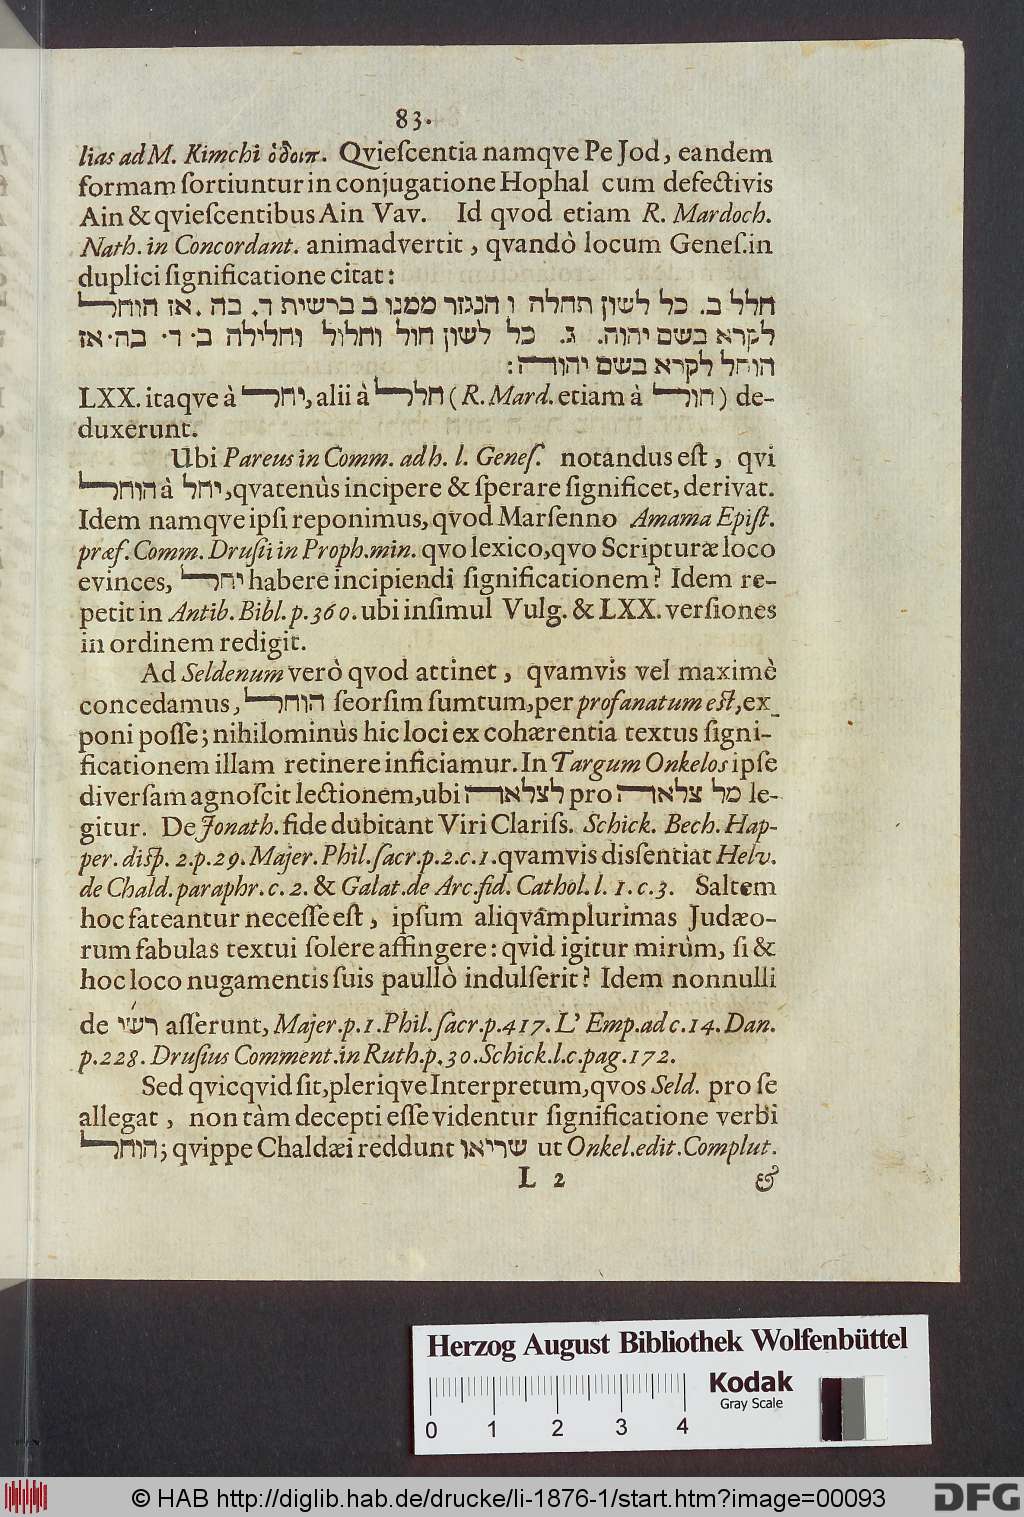 83.
lias ad M. Kimchi ὁδοιπ. Qvieſcentia namqve Pe Jod, eandem
formam ſortiuntur in conjugatione Hophal cum defectivis
Ain & qvieſcentibus Ain Vav. Id qvod etiam R. Mardoch.
Nath. in Concordant. animadvertit, qvandò locum Geneſ. in
duplici ſignificatione citat:
חלל ב. כל לשון תחלה ו הנגזר ממנו ב ברשית ד. כה. אז הוחל
לקרא בשם יהוה. ג. כל לשון חול וחלול וחלילה ב. ד. כה. אז
הוחל לקרא בשם יהודה:
LXX. itaqve à יחל, alii à חלל (R. Mard. etiam à חול) de-
duxerunt.
Ubi Pareus in Comm. ad h. l. Geneſ. notandus eſt, qvi
הוחל à יחל, qvatenùs incipere & ſperare ſignificet, derivat.
Idem namqve ipſi reponimus, qvod Marſenno Amama Epiſt.
præf. Comm. Druſii in Proph. min. qvo lexico, qvo Scripturæ loco
evinces, יחל habere incipiendi ſignificationem? Idem re-
petit in Antib. Bibl. p. 360. ubi inſimul Vulg. & LXX. verſiones
in ordinem redigit.
Ad Seldenum verò qvod attinet, qvamvis vel maximè
concedamus, הוחל ſeorſim ſumtum, per profanatum eſt, ex-
poni poſſe; nihilominùs hic loci ex cohærentia textus ſigni-
ficationem illam retinere inficiamur. In Targum Onkelos ipſe
diverſam agnoſcit lectionem, ubi לצלאה pro מל צלאה le-
gitur. De Jonath. fide dubitant Viri Clariſs. Schick. Bech. Hap-
per. diſp. 2. p. 29. Majer. Phil. ſacr. p. 2. c. 1. qvamvis disſentiat Helv.
de Chald. paraphr. c. 2. & Galat. de Arc. fid. Cathol. l. 1. c. 3. Saltem
hoc fateantur neceſſe eſt, ipſum aliqvâm plurimas Judæo-
rum fabulas textui ſolere affingere: qvid igitur mirùm, ſi &
hoc loco nugamentis ſuis paullò indulſerit? Idem nonnulli
de רש״י aſſerunt, Majer. p. 1. Phil. ſacr. p. 417. L' Emp. ad c. 14. Dan.
p. 228. Druſius Comment. in Ruth. p. 30. Schick. l. c. pag. 172.
Sed qvicqvid ſit, pleriqve Interpretum, qvos Seld. pro ſe
allegat, non tàm decepti eſſe videntur ſignificatione verbi
הוחל; qvippe Chaldæi reddunt שריאו ut Onkel. edit. Complut.
L 2 &
Herzog August Bibliothek Wolfenbüttel
Kodak
Gray Scale
0 1 2 3 4
© HAB http://diglib.hab.de/drucke/li-1876-1/start.htm?image=00093
DFG